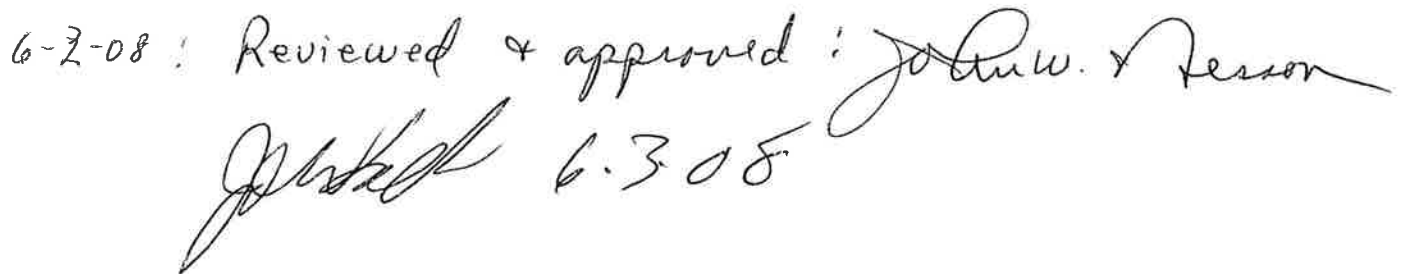 6-2-08 : Reviewed & approved : John W.
6.3.08